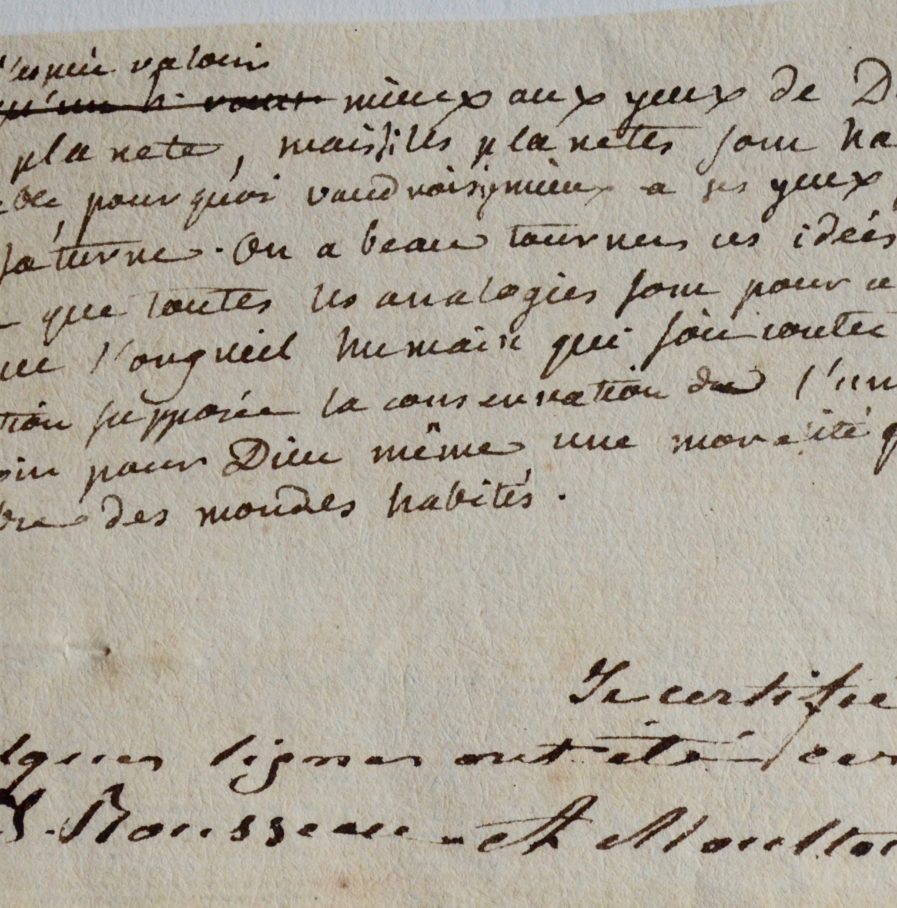 l'espèce valoir
qu'un h. vaut mieux aux yeux de D
planete, mais si les planetes sont ha
pourquoi vaudrois-je mieux a ses yeux
saturne. On a beau tourner ces idées
que toutes les analogies sont pour
l'orgueil humain qui soit contre
tion supposée la conservation de l'un
pour Dieu même une moralité q
des mondes habités.
Je certifie
lques lignes ont été ecr
J. Rousseau A Moulto